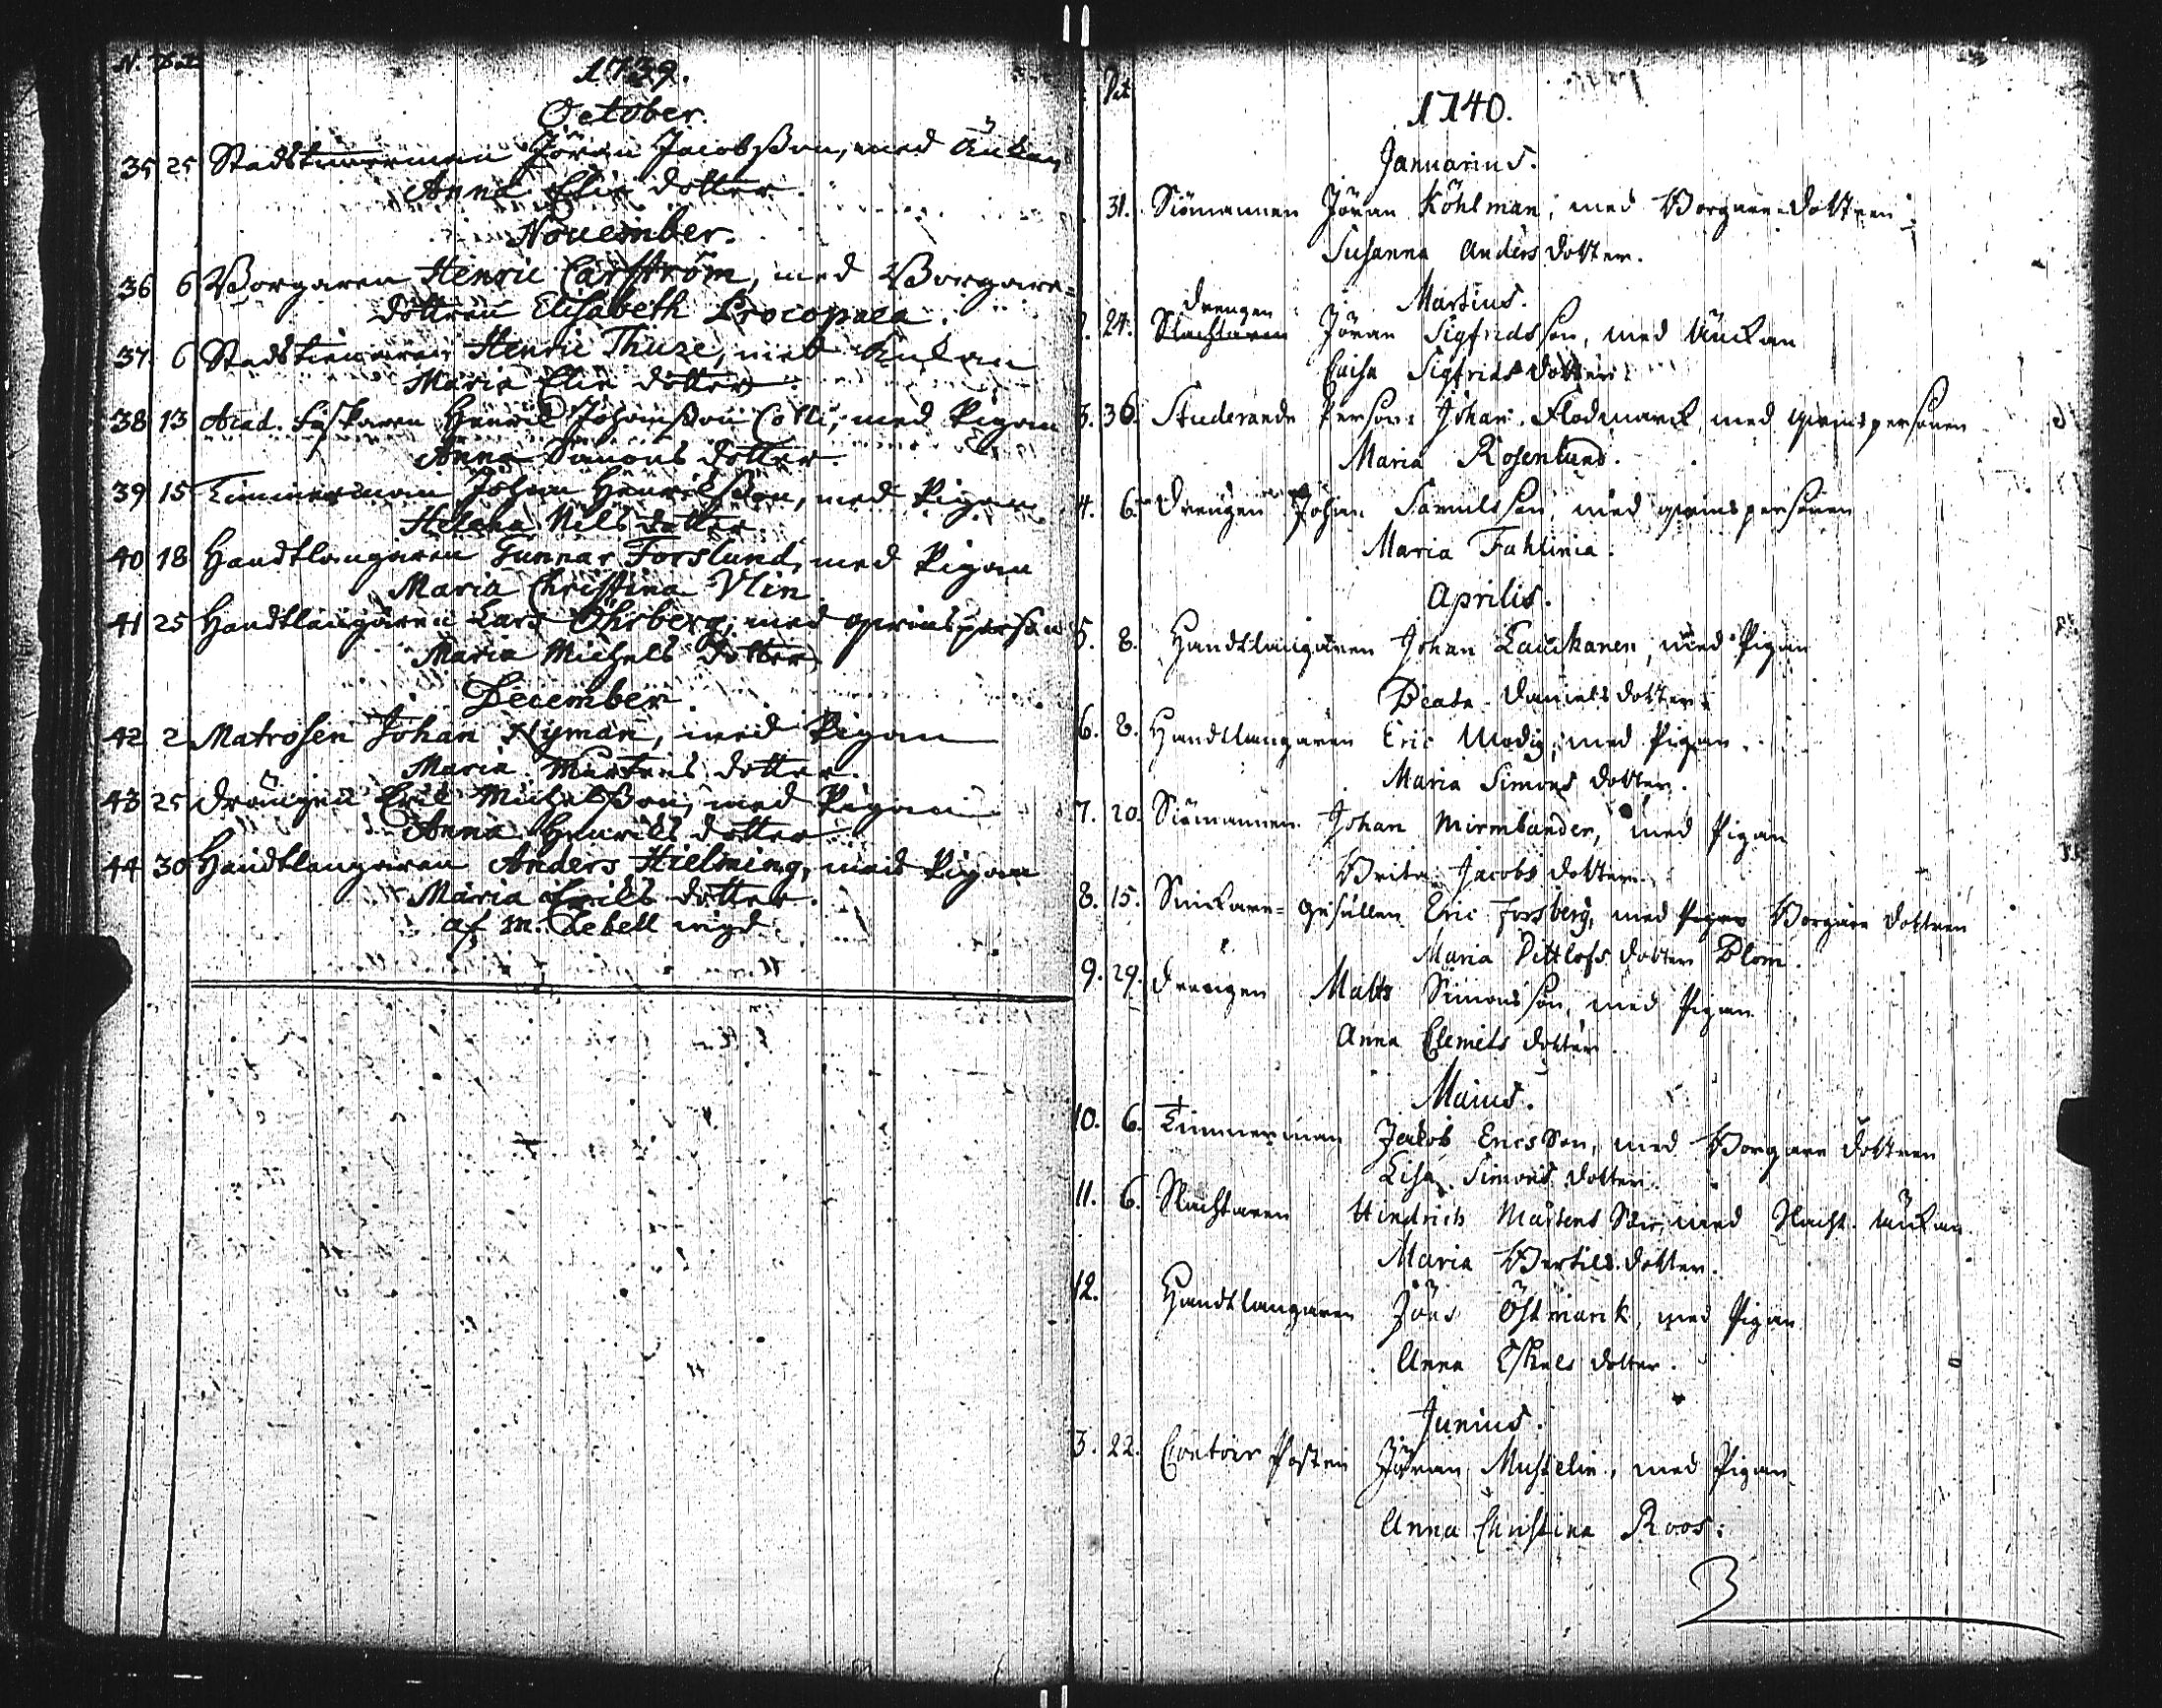 N. Dat.
1739.
October.
35 25 Stadstimmerman Jöran Jacobsson, med Änkan
Anna Elie dotter.
November.
36 6 Borgaren Henric Carström, med Borgare-
dottren Elisabeth Procopaea.
37 6 Stadstienaren Henric Thuze, med Enkan
Maria Elie dotter.
38 13 Acad. Fiskaren Henric Johansson Colli, med Pigan
Anna Simons dotter.
39 15 Timmerman Johan Henricsson, med Pigan
Helena Nils dotter
40 18 Handtlangaren Gunnar Forslund, med Pigan
Maria Christina Ulin
41 25 Handtlangaren Lars Öhrberg, med qvinsperson
Maria Michels dotter.
December
42 2 Matrosen Johan Nyman, med Pigan
Maria Mårtens dotter.
43 25 Drängen Eric Michelsson, med Pigan
Anna Henrics dotter
44 30 Handtlangaren Anders Hielming, med Pigan
Maria Erics dotter.
af m. Lebell wigd.
Dat
1740.
Januarius.
31. Siömannen Jöran Köhlman, med Borgare-dottren
Susanna Anders dotter.
Martius.
Drengen
24. Slachtaren Jöran Sigfridsson, med Änkan
Caisa Sigfrids dotter.
3. 36. Studerande Person: Johan Flodmarck med qvinspersonen
Maria Rosenlund.
4. 6. Drengen Johan Samulsson med qvinspersonen
Maria Fahlinia.
Aprilis.
5. 8. Handtlangaren Johan Lauckanen, med Pigan
Beata Daniels dotter.
6. 8. Handtlangaren Eric Modig, med Pigan
Maria Simons dotter.
7. 20. Siömannen Johan Mirmbander, med Pigan
Brita Jacobs dotter.
8. 15. Snickare-gesällen Eric Forsberg, med Pigan Borgare dottren
Maria Dittlofs dotter Blom.
9. 29. Drengen Matts Simonsson, med Pigan
Anna Clemets dotter.
Maius.
10. 6. Timmerman Jakob Ericsson, med Borgare dottren
Lisa Simons dotter.
11. 6. Slachtaren Hindrich Mårtens Son, med Slacht. änkan
Maria Bertils dotter.
12. Handtlangaren Jöns Östmark, med Pigan
Anna Eskels dotter.
Junius.
3. 22. Contoir Posten Jöran Mustelin, med Pigan
Anna Christina Roos.